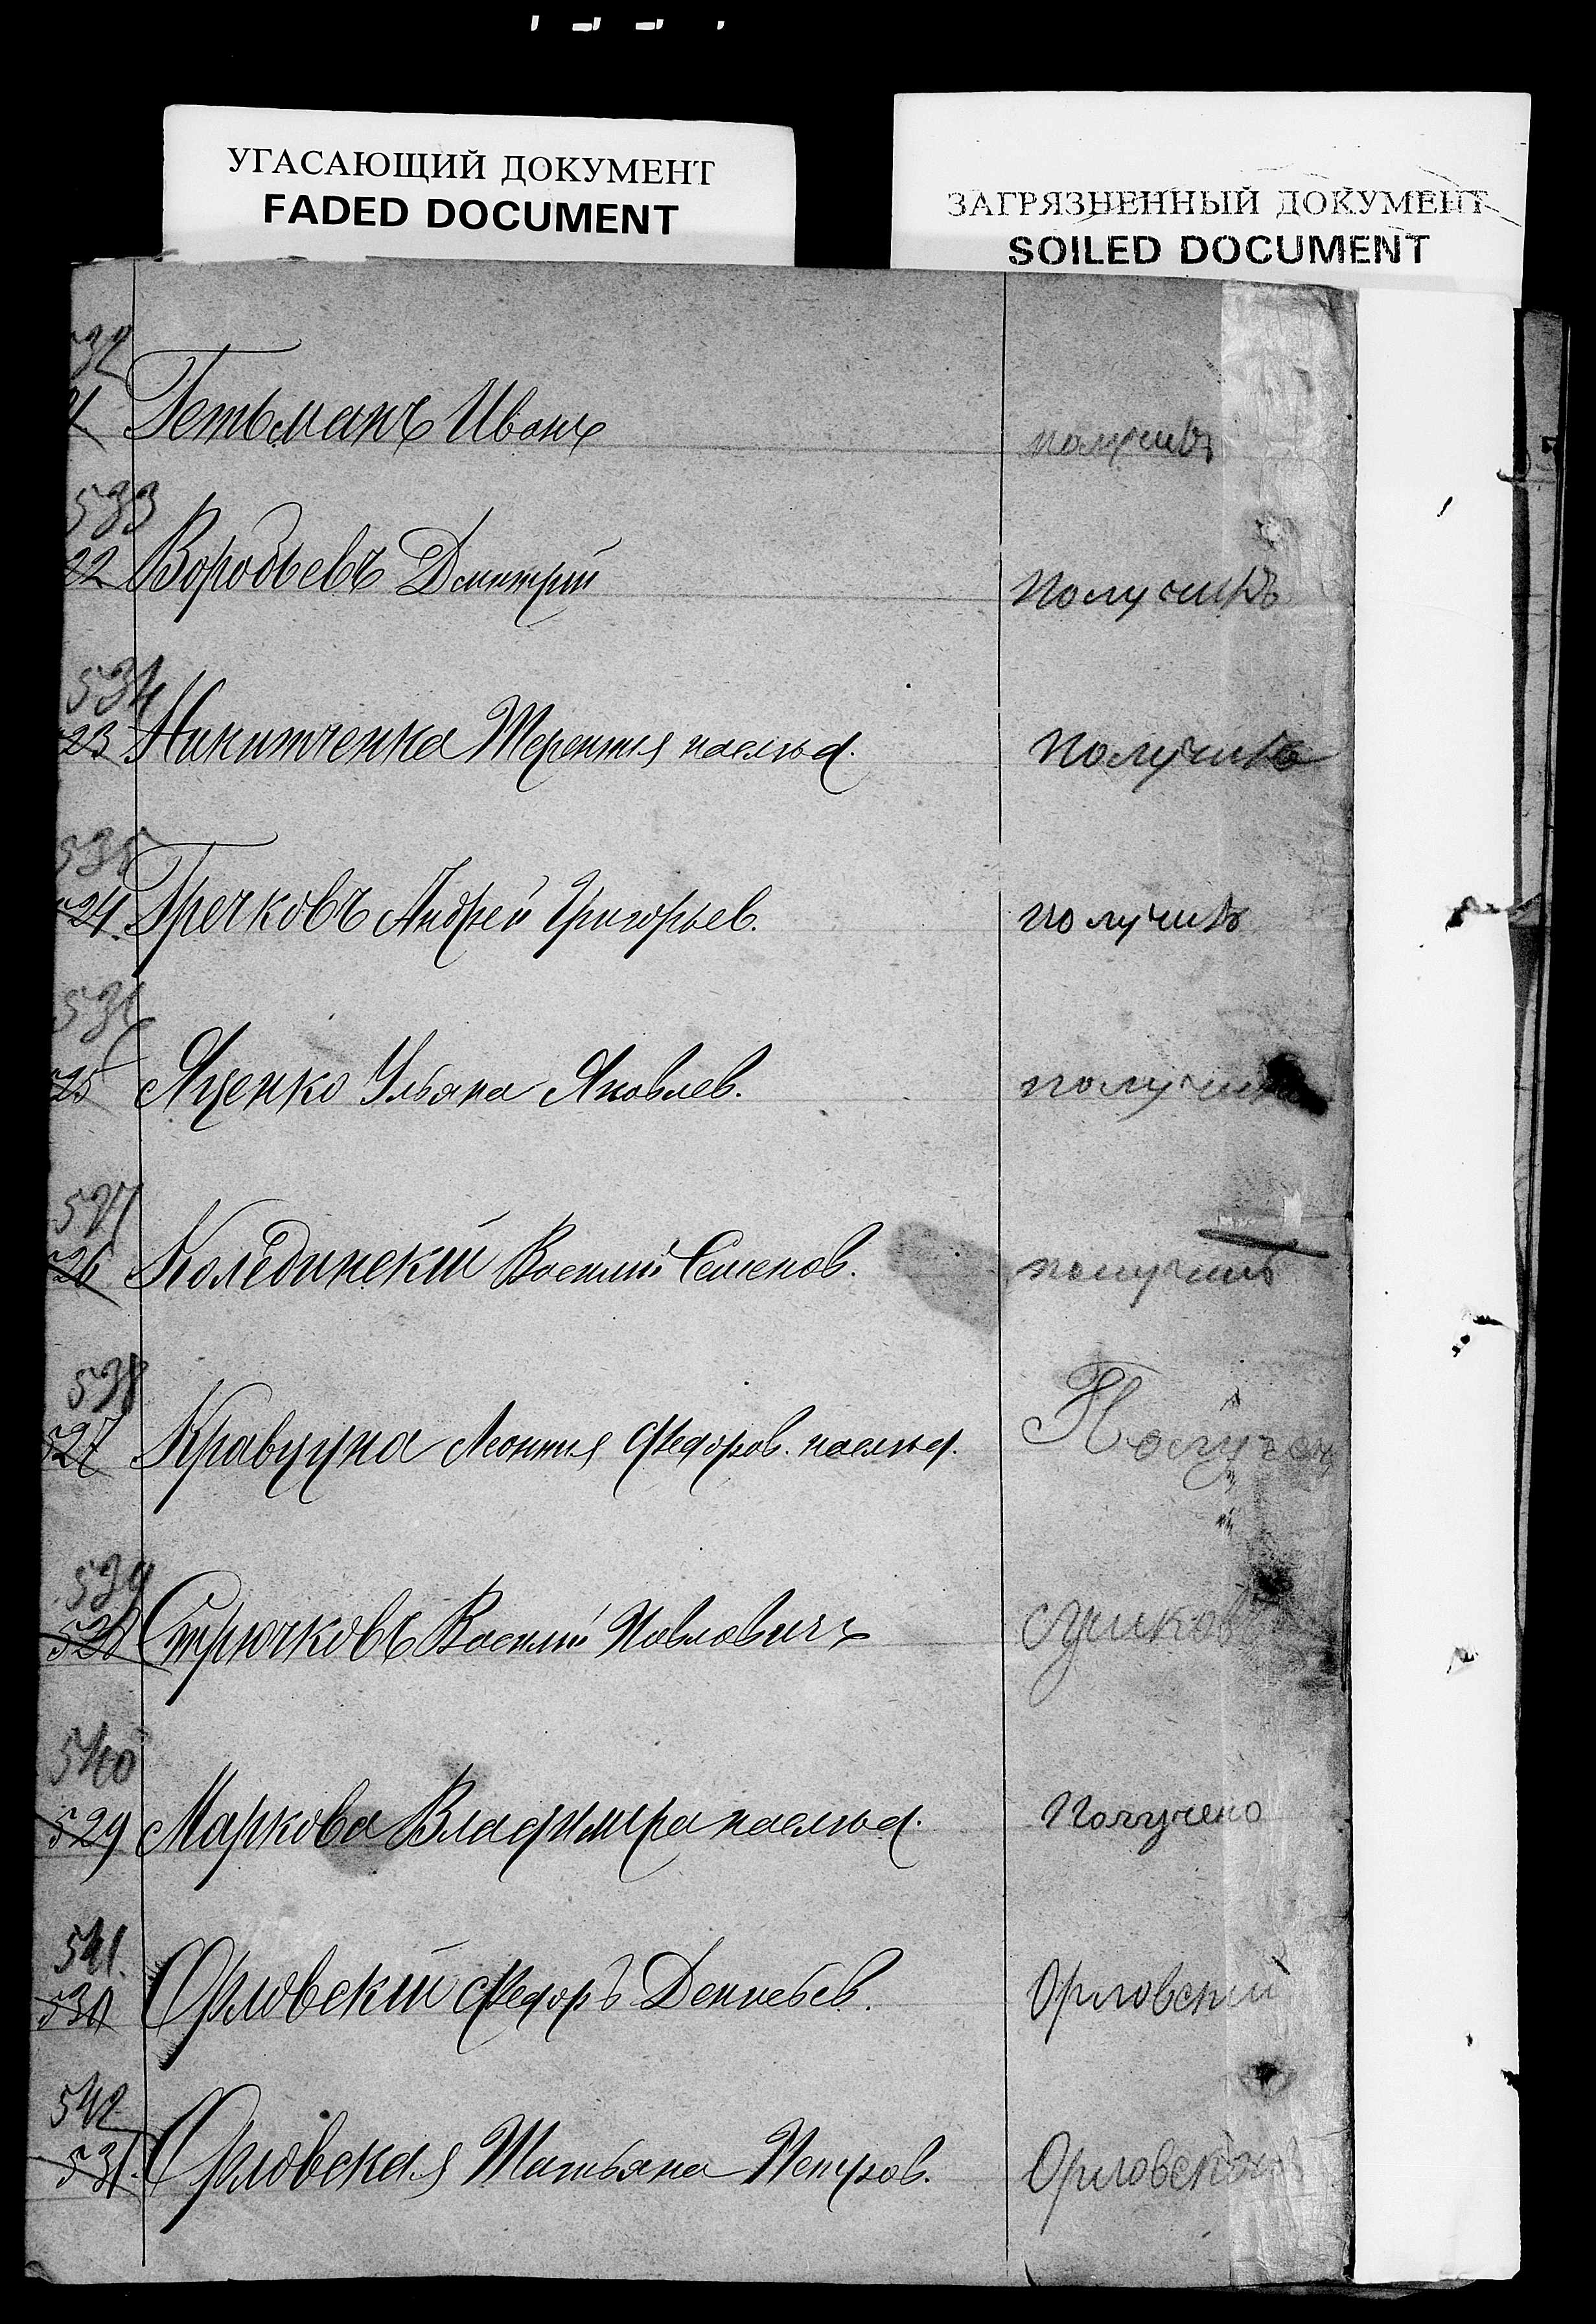 УГАСАЮЩИЙ ДОКУМЕНТ
FADED DOCUMENT
ЗАГРЯЗНЕННЫЙ ДОКУМЕНТ
SOILED DOCUMENT
532
Гетьманъ Иванъ получилъ
533
22 Воробьевъ Дмитрий получилъ
534
23 Никитченка Терентия наслѣд. получилъ
535
524. Гречковъ Андрей Григорьев. получилъ
536
525 Яценко Ульяна Яковлев. получила
537
526 Коледински Василий Семенов. получилъ
538
527 Кравцуна Леонтия Федоров. наслѣд. Получен
539
528 Стрючковъ Василий Павловичъ
540
529 Маркова Владимира наслѣд. Получено
541.
530 Орловский Федоръ Орловский
542
531. Орловская Татьяна Петров. Орловская